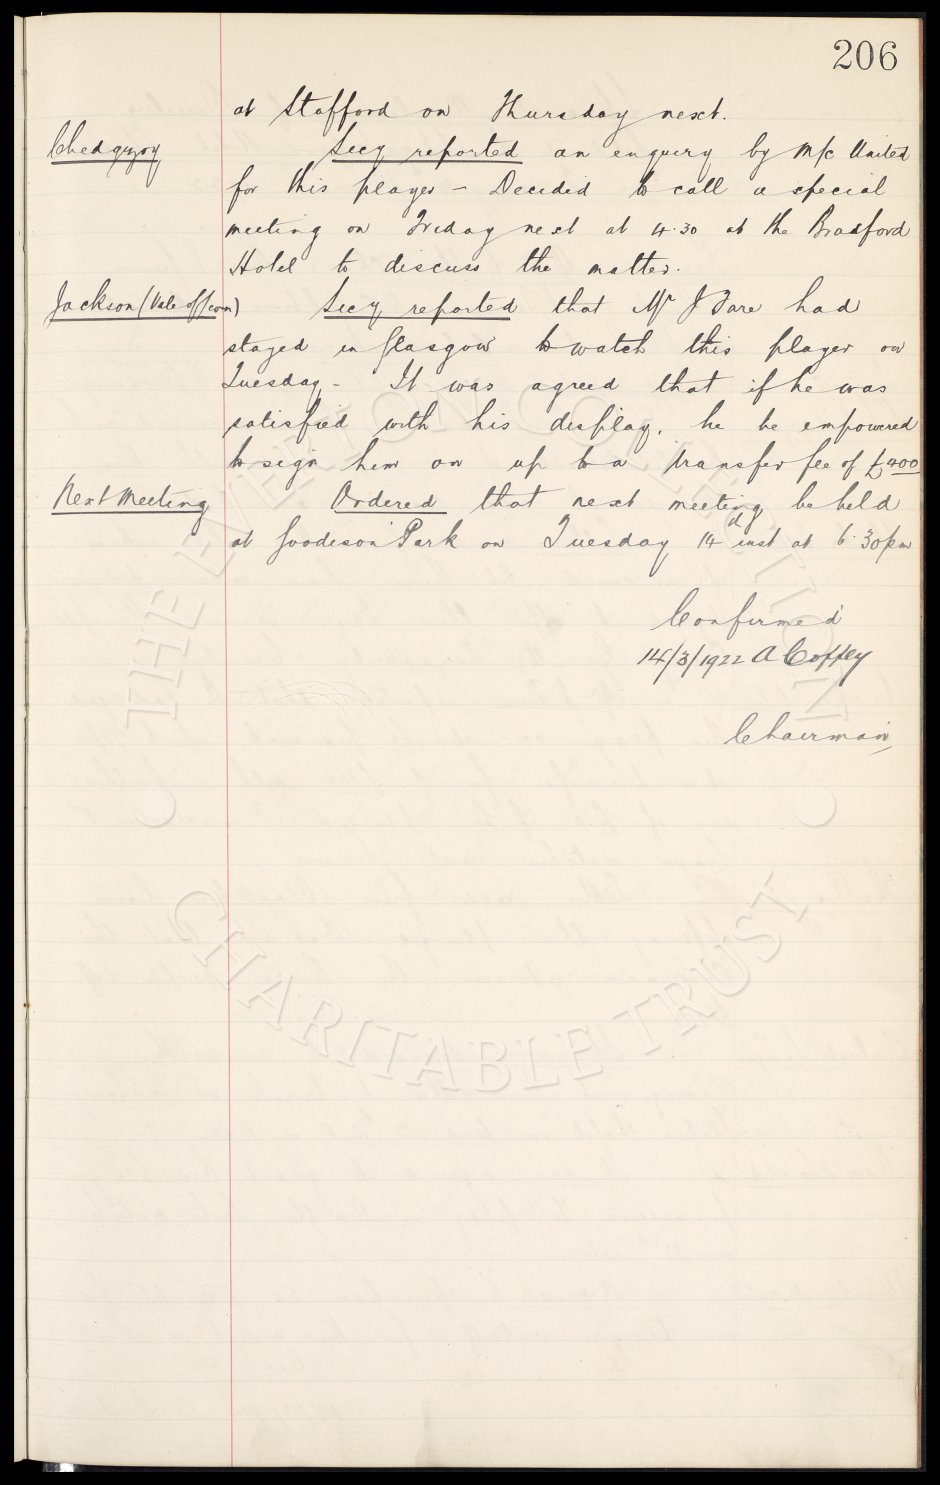 206
at Stafford on Thursday next.
Chedgzoy
Secy reported an enquiry by M/c United
for this player - Decided to call a special
meeting on Friday next at 4.30 at the Bradford
Hotel to discuss the matter.
Jackson (Vale of Leven)
Secy reported that Mr J Fare had
stayed in Glasgow to watch this player on
Tuesday - It was agreed that if he was
satisfied with his display, he be empowered
to sign him on up to a transfer fee of £400
Next Meeting
Ordered that next meeting be held
at Goodison Park on Tuesday 14th inst at 6.30pm
Confirmed
14/3/1922 A Coffey
Chairman
THE EVERTON COLLECTION
CHARITABLE TRUST